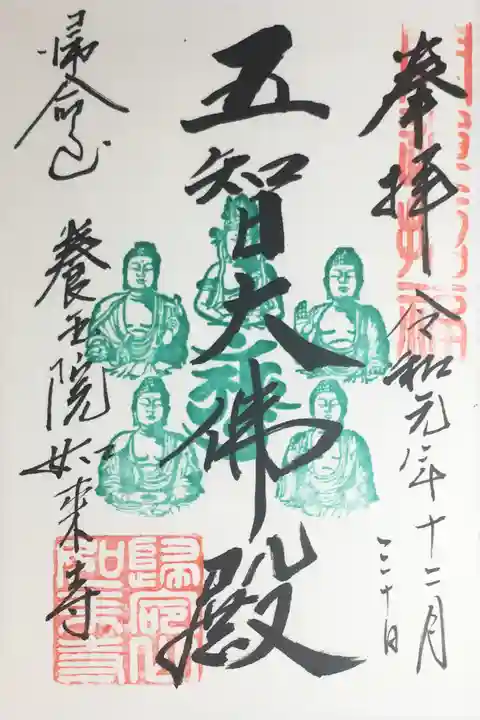 奉拝
令和元年十二月
三十日
五智大佛殿
帰命山
養玉院如来寺